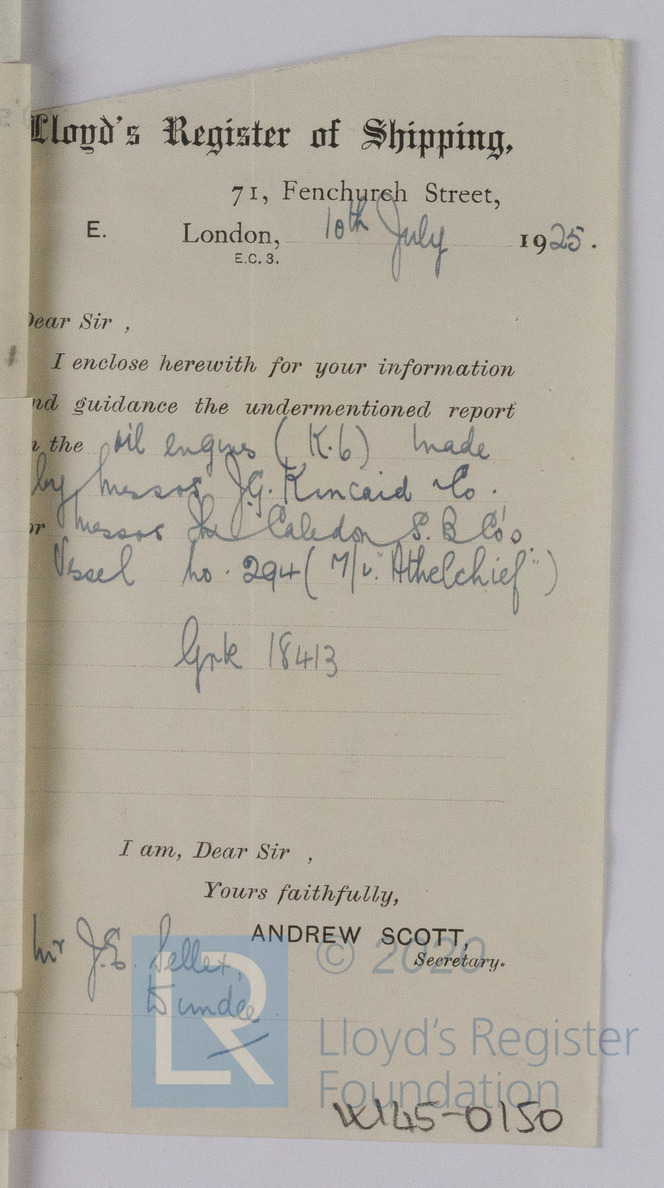 Lloyd's Register of Shipping,
71, Fenchurch Street,
E. London, 10th July 1925.
E.C.3.
Dear Sir,
I enclose herewith for your information
nd guidance the undermentioned report
n the oil engines (K.6) made
by Messrs J.G. Kincaid & Co.
or Messrs The Caledon S.B. Co's
Vessel no. 294 (M/v. "Athelchief")
Grk 18413
I am, Dear Sir,
Yours faithfully,
ANDREW SCOTT,
Secretary.
Mr J.E. Sellex,
Dundee
© 2020
LR
Lloyd's Register
Foundation
W145-0150